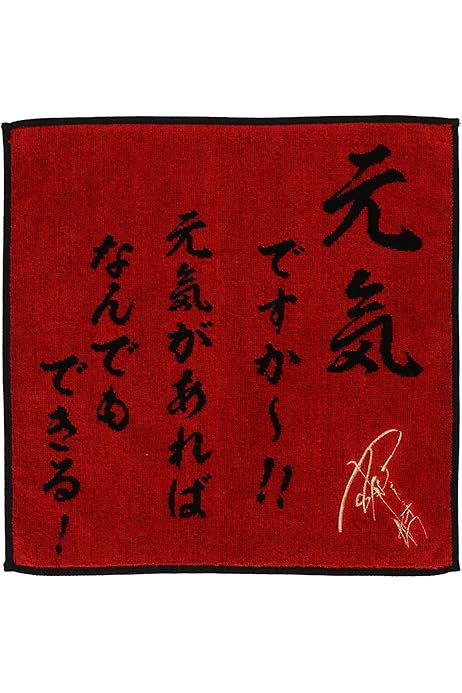 元気
ですか〜!!
元気があれば
なんでも
できる!